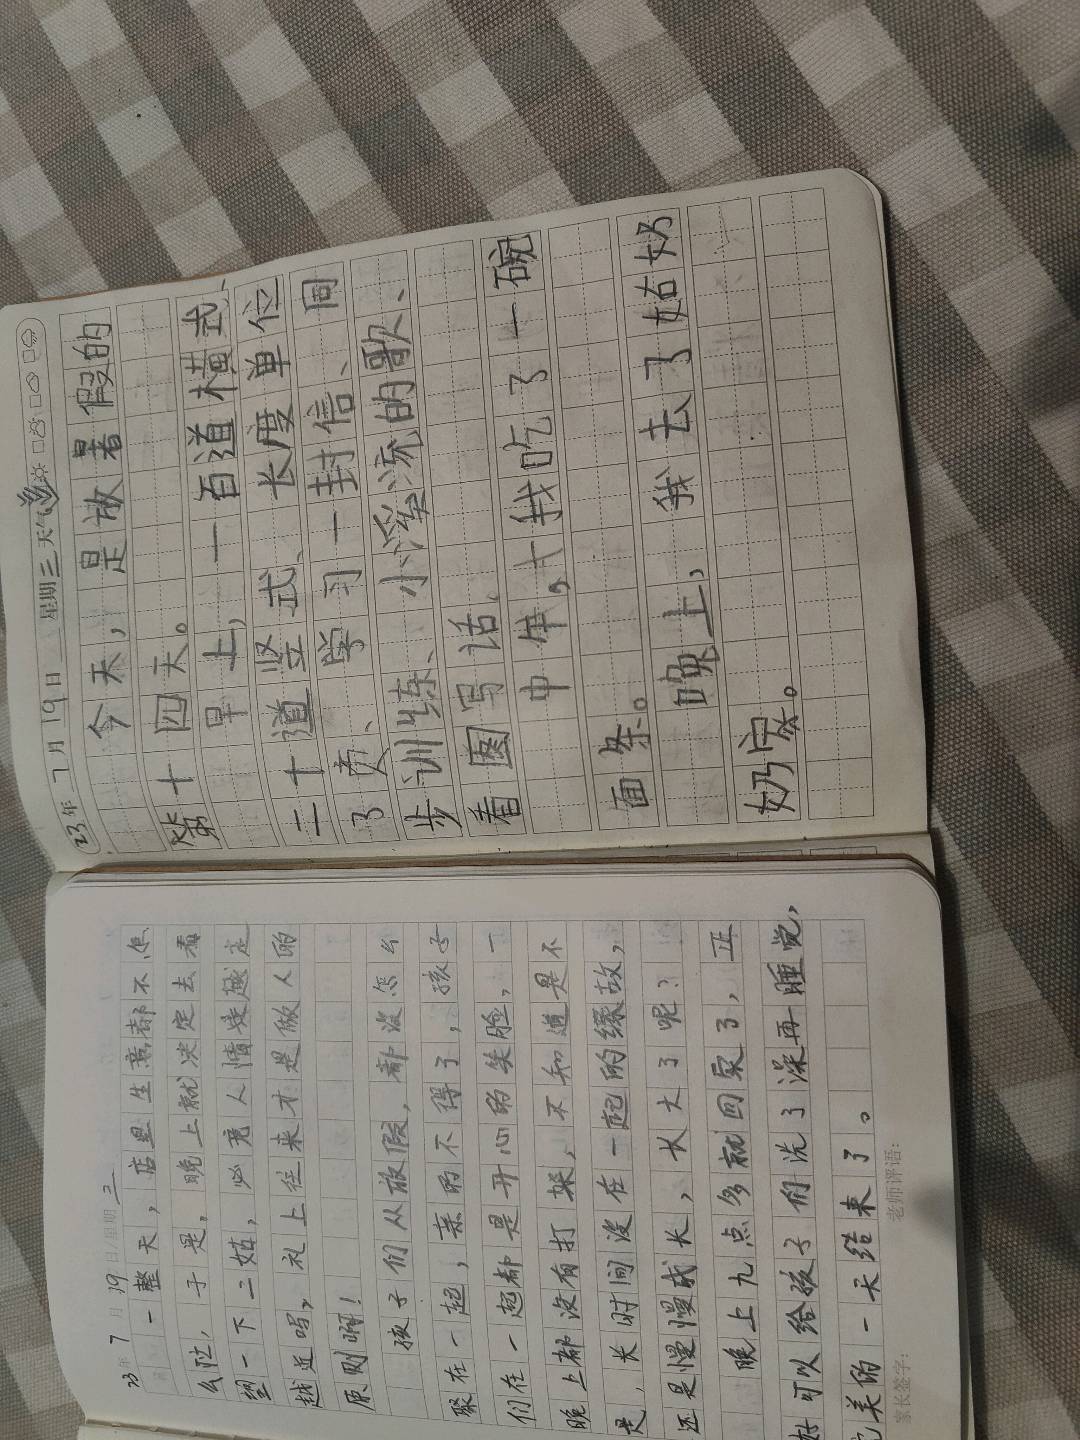 23年7月19日星期三
一整天,店里生意都不怎
么忙,于是,晚上就决定去看
望一下二姑,必竟人情是越走
越近吗,礼上往来才是做人的
原则啊!
孩子们从放假,都没怎么
聚在一起,亲的不得了,孩子
们在一起都是开心的笑脸,一
晚上都没有打躁,不知道是不
是,长时间没在一起的缘故,
还是慢慢成长,长大了呢?
晚上九点多就回家了,正
好可以给孩子们洗了澡再睡觉,
完美的一天结束了。
家长签字: 老师评语:
23年7月19日 星期三 天气
今天,是放暑假的
第十四天。
早上,一百道横式、
二十道竖式、长度单位
了页、学习一封信、同
步训练、小溪流的歌、
看图写话。
中午,我吃了一碗
面条。
晚上,我去了姑奶
奶家。